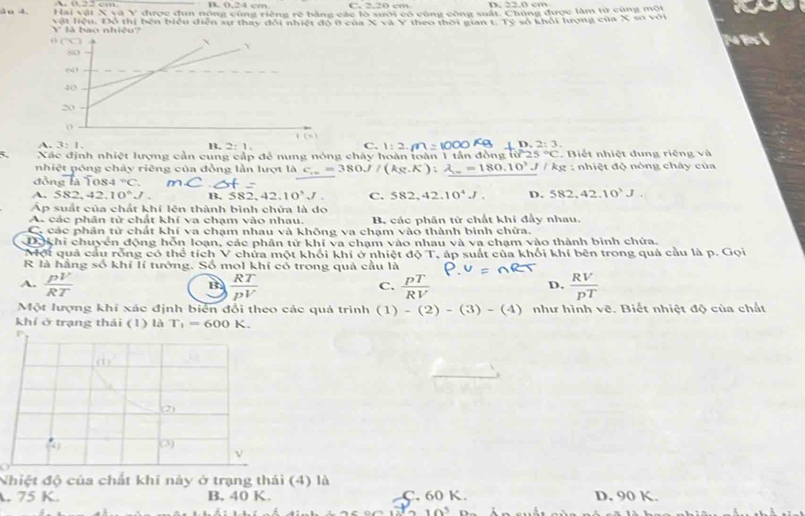 A. 0,22 cm. B. 0,24 cm. C. 2,20 cm. D. 22,0 cm.
âu 4. Hai vật X và Y được đun nóng cùng riêng rẽ bằng các lò sưởi có cùng công suất. Chúng được làm từ cùng một
vật liệu. Đồ thị bên biểu diễn sự thay đổi nhiệt độ θ của X và Y theo thời gian t. Tỷ số khối lượng của X so với
Y là bao nhiêu?
θ (°C) X Y
80
60
40
20
0
t (s)
A. 3: 1. B. 2: 1. C. 1: 2. m = 1000 Kg D. 2: 3.
5. Xác định nhiệt lượng cần cung cấp để nung nóng chảy hoàn toàn 1 tấn đồng từ 25 °C. Biết nhiệt dung riêng và
nhiệt nóng chảy riêng của đồng lần lượt là c_cu = 380J / (kg.K) ; λ_cu = 180.10³J / kg ; nhiệt độ nóng chảy của
đồng là 1084 °C. m C Δt =
A. 582,42.10⁶J . B. 582,42.10³J . C. 582,42.10⁴J . D. 582,42.10⁵J .
Áp suất của chất khí lên thành bình chứa là do
A. các phân tử chất khí va chạm vào nhau. B. các phân tử chất khí đẩy nhau.
C. các phân tử chất khí va chạm nhau và không va chạm vào thành bình chứa.
D. khi chuyển động hỗn loạn, các phân tử khí va chạm vào nhau và va chạm vào thành bình chứa.
Một quả cầu rỗng có thể tích V chứa một khối khí ở nhiệt độ T, áp suất của khối khí bên trong quả cầu là p. Gọi
R là hằng số khí lí tưởng. Số mol khí có trong quả cầu là P.V = nRT
A. pV/RT B. RT/pV C. pT/RV D. RV/pT
Một lượng khí xác định biến đổi theo các quá trình (1) - (2) - (3) - (4) như hình vẽ. Biết nhiệt độ của chất
khí ở trạng thái (1) là T₁ = 600 K.
P
(1)
(2)
(4) (3)
V
O
Nhiệt độ của chất khí này ở trạng thái (4) là
A. 75 K. B. 40 K. C. 60 K. D. 90 K.